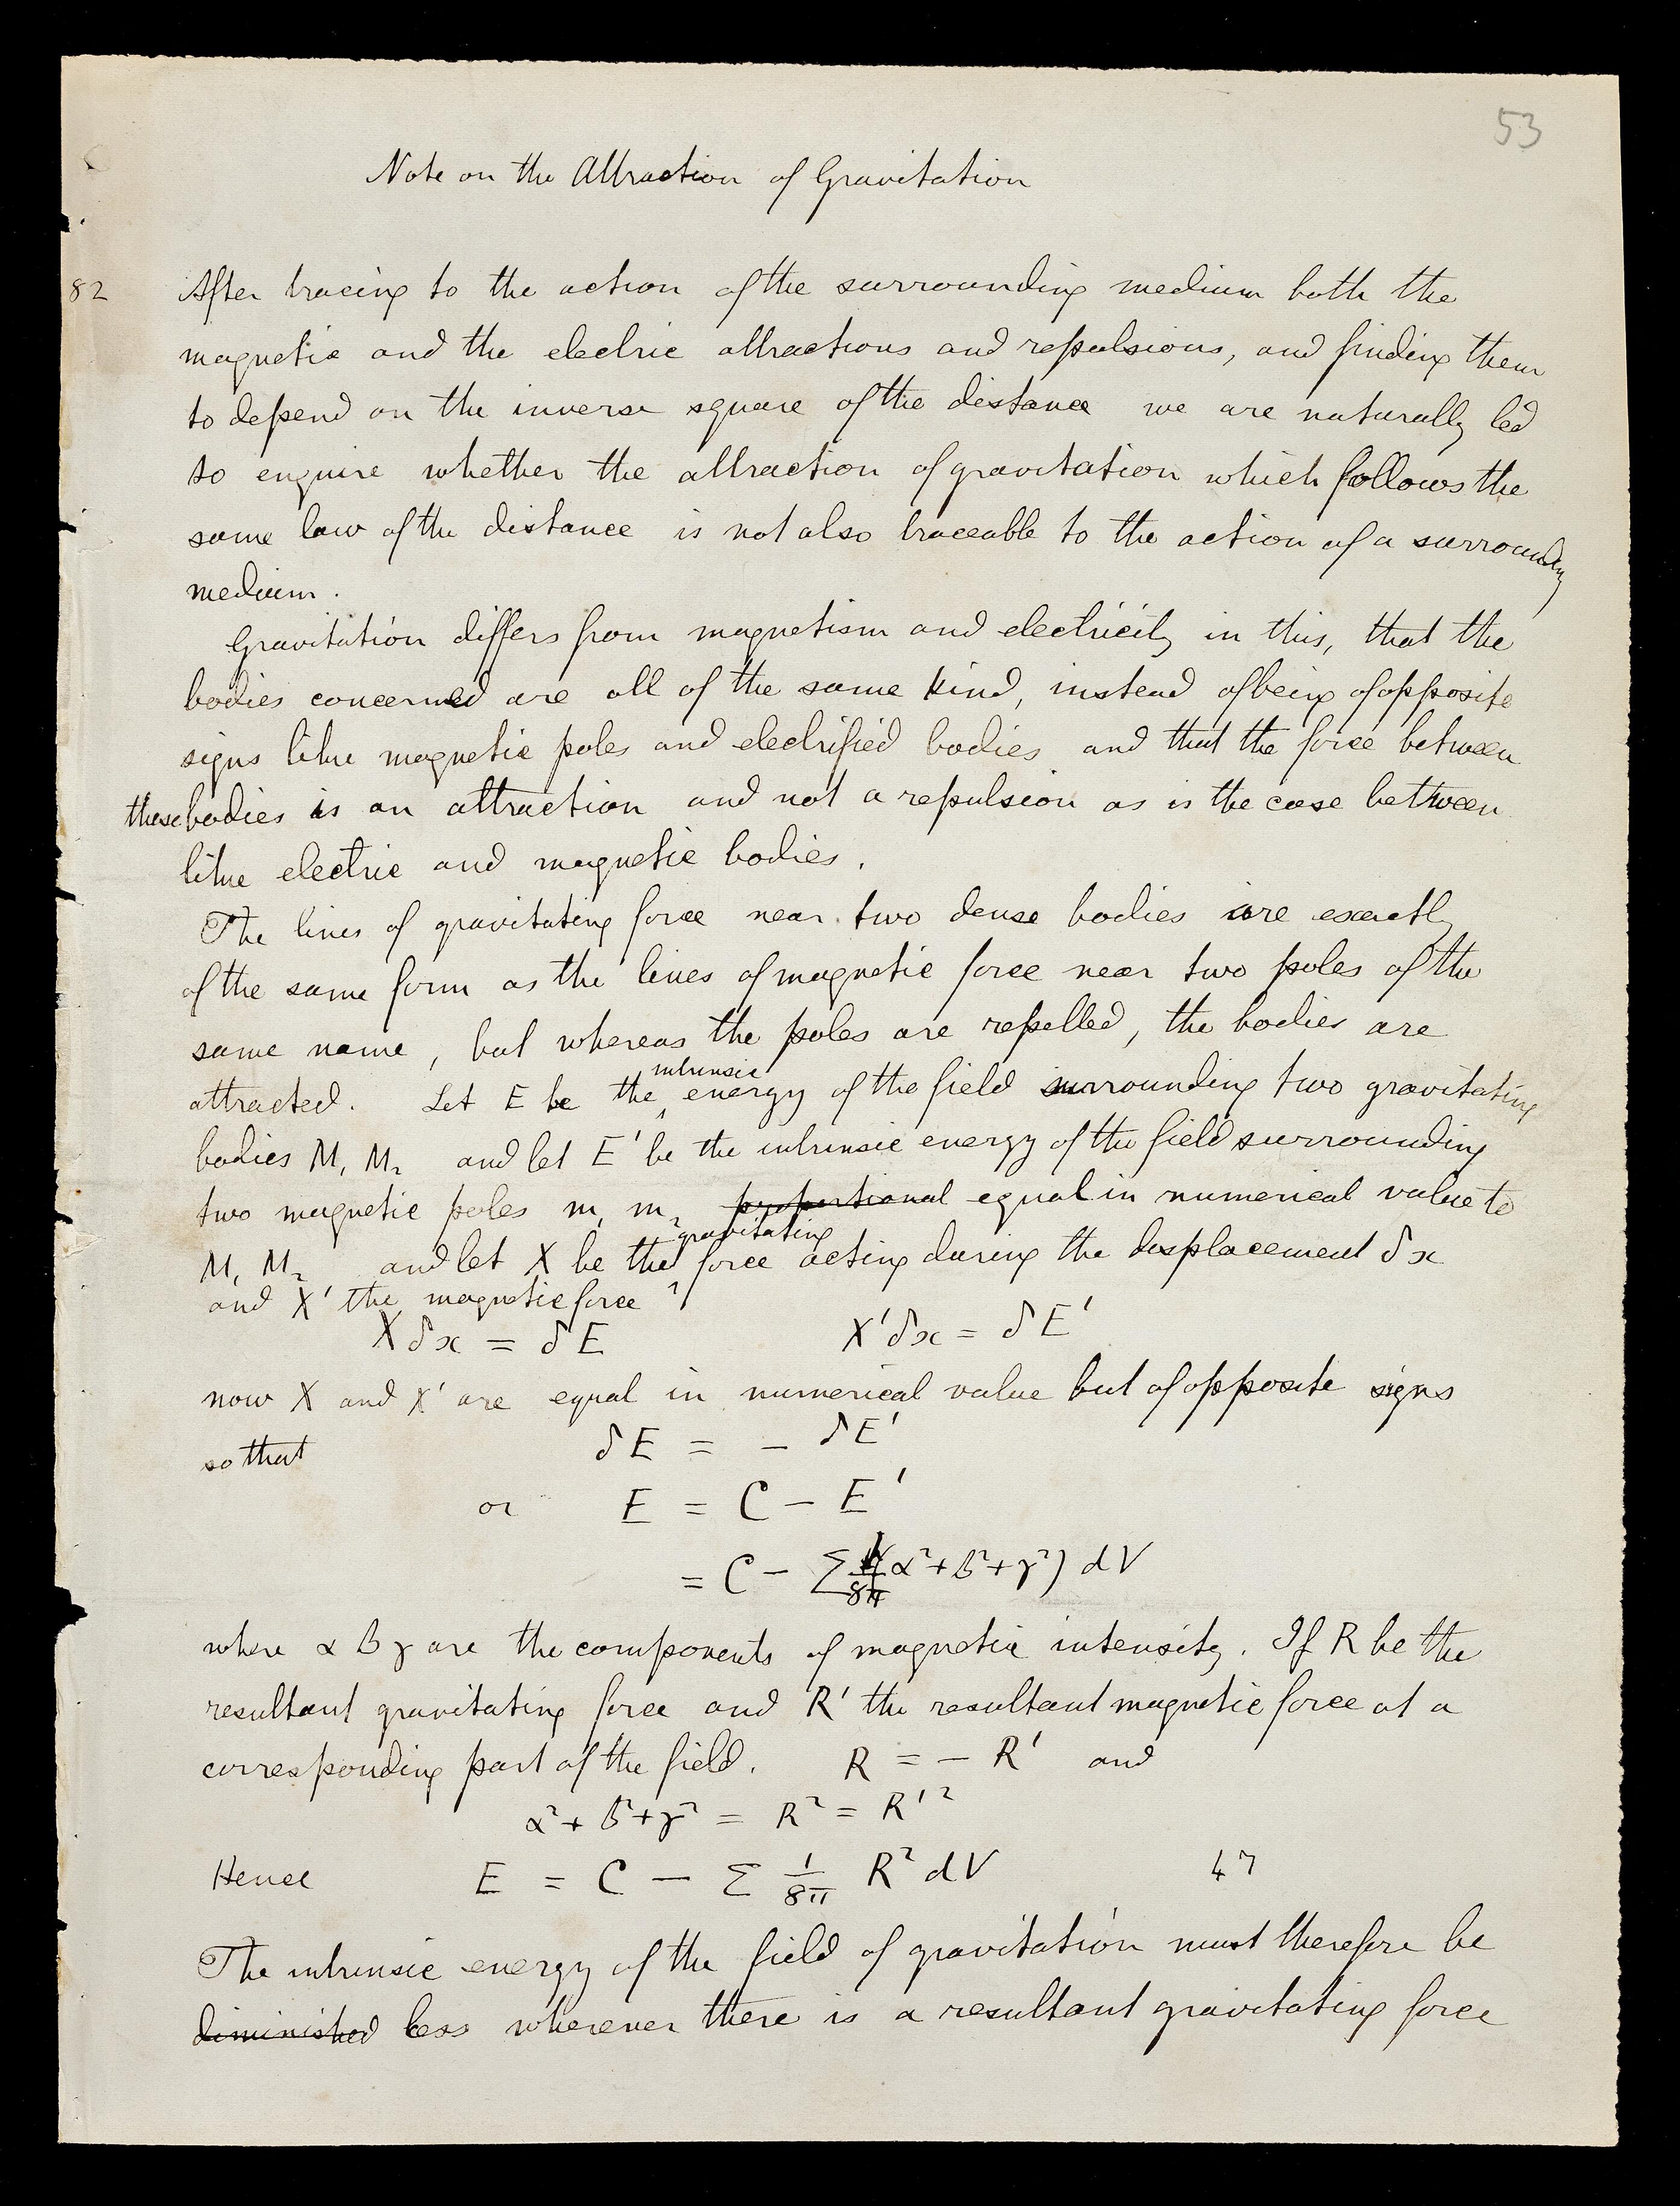 53
Note on the Attraction of Gravitation
82 After tracing to the action of the surrounding medium both the
magnetic and the electric attractions and repulsions, and finding them
to depend on the inverse square of the distance we are naturally led
to enquire whether the attraction of gravitation which follows the
same law of the distance is not also traceable to the action of a surrounding
medium.
Gravitation differs from magnetism and electricity in this, that the
bodies concerned are all of the same kind, instead of being of opposite
signs like magnetic poles and electrified bodies and that the force between
these bodies is an attraction and not a repulsion as is the case between
like electric and magnetic bodies.
The lines of gravitating force near two dense bodies are exactly
of the same form as the lines of magnetic force near two poles of the
same name, but whereas the poles are repelled, the bodies are
attracted. Let E be the intrinsic energy of the field surrounding two gravitating
bodies M₁ M₂ and let E' be the intrinsic energy of the field surrounding
two magnetic poles m₁ m₂ proportional equal in numerical value to
M₁ M₂ and let X be the gravitating force acting during the displacement δx
and X' the magnetic force
Xδx = δE X'δx = δE'
now X and X' are equal in numerical value but of opposite signs
so that δE = – δE'
or E = C – E'
= C – Σ 1/8π (α² + β² + γ²) dV
where α β γ are the components of magnetic intensity. If R be the
resultant gravitating force and R' the resultant magnetic force at a
corresponding part of the field. R = – R' and
α² + β² + γ² = R² = R'²
Hence E = C – Σ 1/8π R² dV 47
The intrinsic energy of the field of gravitation must therefore be
diminished less wherever there is a resultant gravitating force